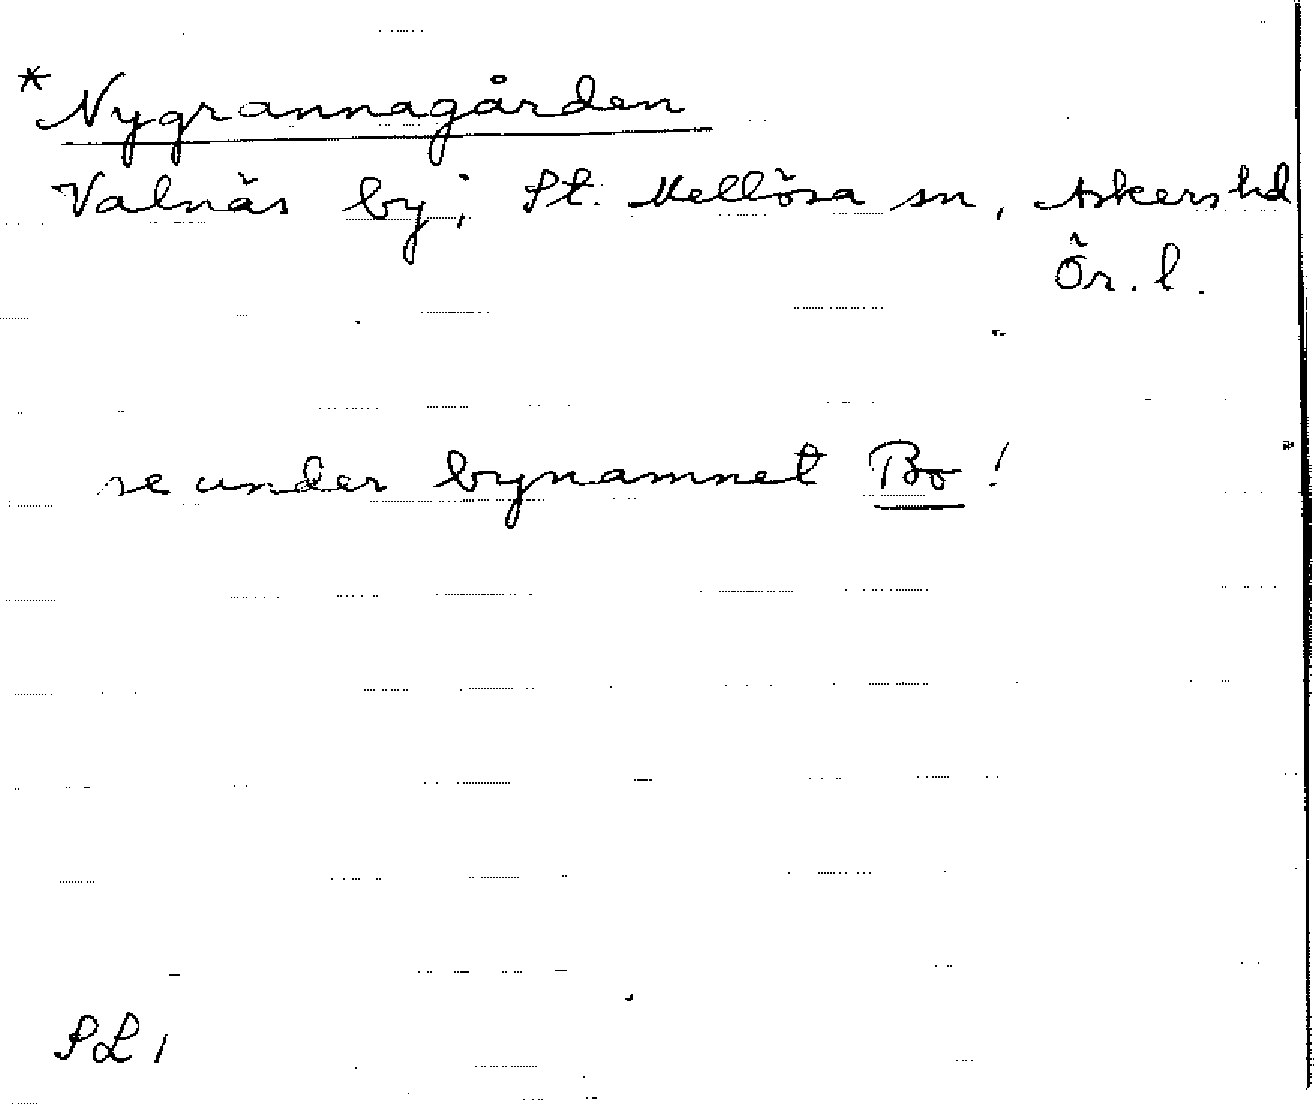 *Nygrannagården
Valnäs by, St. Mellösa sn, Askers hd
Ör. l.
se under bynamnet Bo!
SL 1